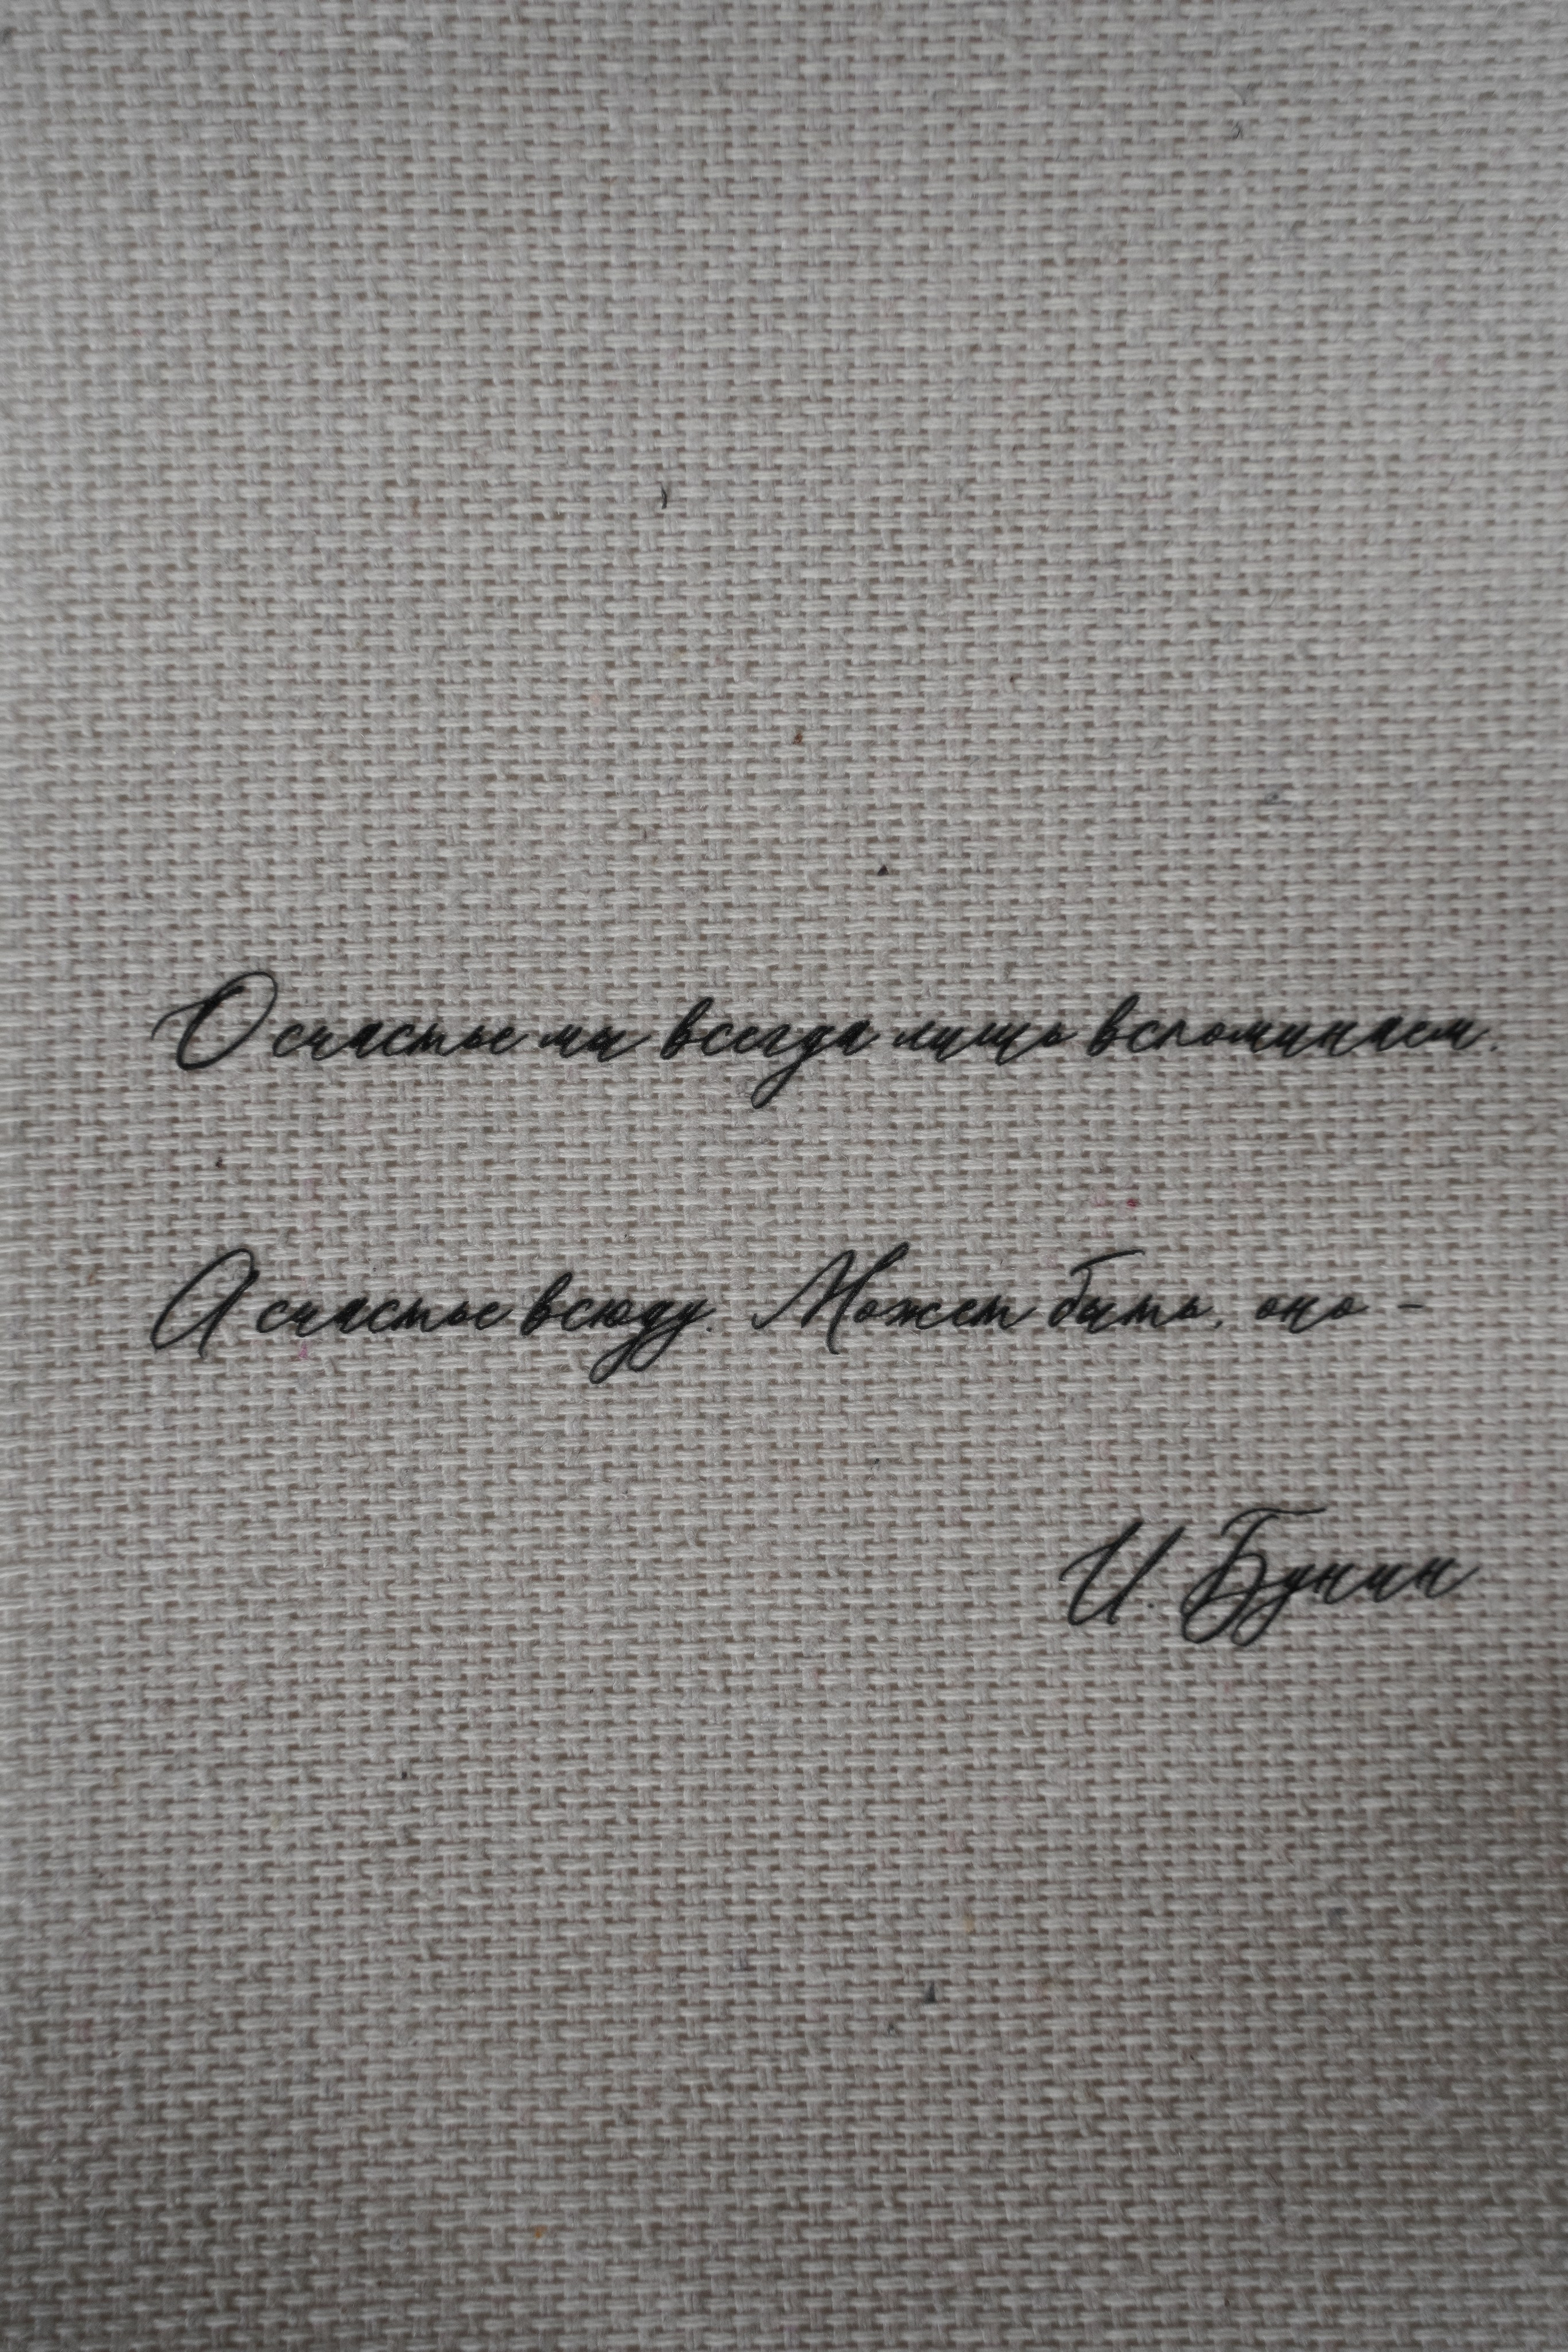 О счастье мы всегда лишь вспоминаем.
А счастье всюду. Может быть, оно -
И. Бунин